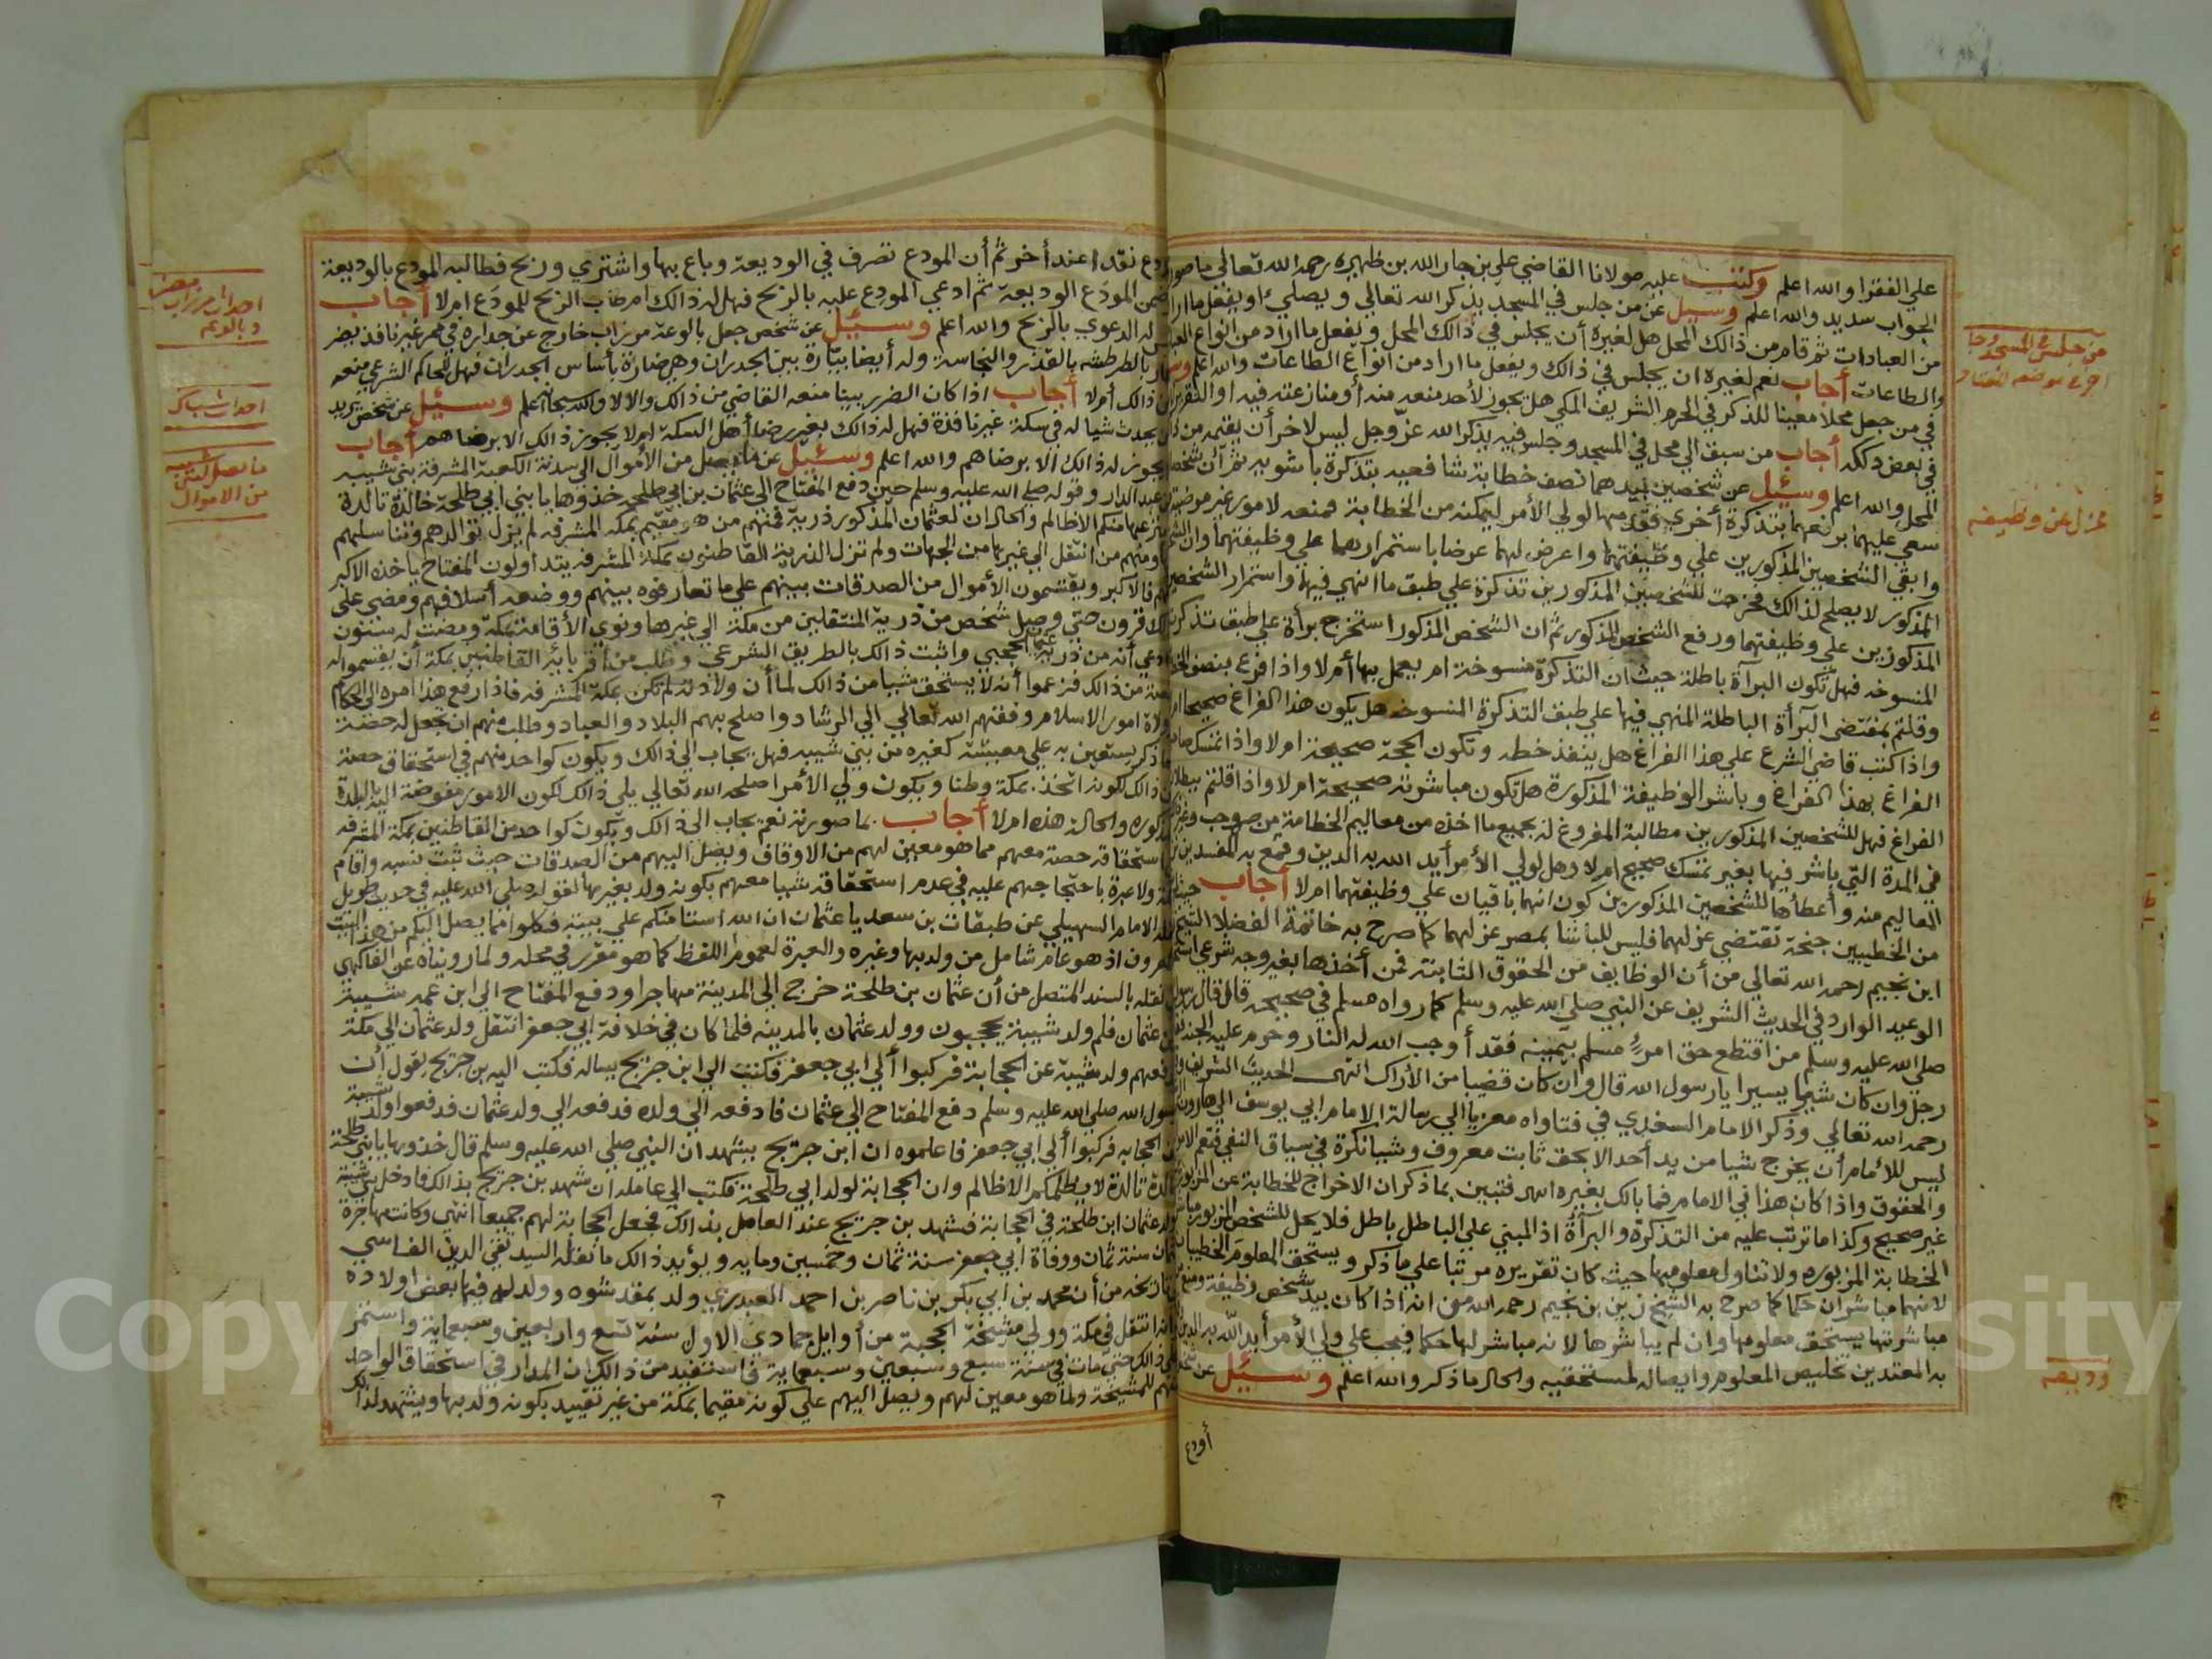 علي الفقرا والله اعلم وكتب عليه مولانا القاضي علي بن جار الله بن ظهيره رحمه الله تعالي ما صورته
الجواب سديد والله اعلم وسيل عن من جلس في المسجد يذكر الله تعالي ويصلي او يفعل ما اراد
من العبادات ثم قام من ذالك المحل هل لغيره أن يجلس في ذالك المحل ويفعل ما اراد من انواع
والطاعات أجاب نعم لغيره ان يجلس في ذالك ويفعل ما اراد من انواع الطاعات والله اعلم
في من جعل محلا معينا للذكر في الحرم الشريف المكي هل يجوز لأحد منعه منه أو منازعته فيه او
في بعض ذلك أجاب من سبق الي محل في المسجد وجلس فيه يذكر الله عز وجل ليس لاخر أن يقيمه من
المحل والله اعلم وسئيل عن شخصين بيدهما نصف خطابة شافعيه بتذكرة باشويه ثم أن شخصا
سعي عليهما برفعهما بتذكرة أخري فقدمها لولي الأمر ليمكنه من الخطابة فمنعه لامور غير مرضية
وابقي الشخصين المذكورين علي وظيفتهما واعرض لهما عرضا باستمرارهما علي وظيفتهما وان
المذكور لا يصلح لذالك فخرجت للشخصين المذكورين تذكرة علي طبق ما انهي فيها واستمرار الشخصين
المذكورين علي وظيفتهما ورفع الشخص المذكور ثم ان الشخص المذكور استخرج برأة علي طبق تذكرته
المنسوخه فهل تكون البرآة باطلة حيث ان التذكرة منسوخة ام يعمل بها أم لا واذا فرغ بنصف
وقلتم بمقتضي البرأة الباطلة المنهي فيها علي طبق التذكرة المنسوخه هل يكون هذا الفراغ صحيحا
واذا كتب قاضي الشرع علي هذا الفراغ هل ينفذ خطه وتكون الحجة صحيحة ام لا واذا تمسك
الفراغ بهذا الفراغ وباشر الوظيفة المذكورة هل تكون مباشرته صحيحة ام لا واذا قلتم ببطلان
الفراغ فهل للشخصين المذكورين مطالبة المفروغ له بجميع ما اخذه من معاليم الخطامة من
في المدة التي باشر فيها بغير تمسك صحيح ام لا وهل لولي الأمر أيد الله به الدين وقمع به المفسدين
المعاليم منه وأعطأها للشخصين المذكورين كون انهما باقيان علي وظيفتهما ام لا أجاب حيث
من الخطيبين جنحة تقتضي عزلهما فليس للباشا بمصر عزلهما كما صرح به خاتمة الفضلا الشيخ
ابن نجيم رحمه الله تعالي من أن الوظايف من الحقوق الثابتة فمن أخذها بغير وجه شرعي
الوعيد الوارد في الحديث الشريف عن النبي صلي الله عليه وسلم كما رواه مسلم في صحيحه قال قال رسول
صلي الله عليه وسلم من اقتطع حق امرئ مسلم بيمينه فقد أوجب الله له النار وحرم عليه الجنة
رجل وان كان شيئا يسيرا يا رسول الله قال وان كان قضيبا من الأراك انتهى الحديث الشريف
رحمه الله تعالي وذكر الامام السغدي في فتاواه معزيا الي رسالة الامام ابي يوسف الي هارون
ليس للأمام أن يخرج شيا من يد أحد الا بحق ثابت معروف وشيا نكرة في سياق النفي فتعم
والحقوق واذا كان هذا في الامام فما بالك بغيره فتبين بما ذكر ان الاخراج للخطابة عن
غير صحيح وكذا ما ترتب عليه من التذكرة والبرآة اذ المبني علي الباطل باطل فلا يحل للشخص المزبور
الخطابة المزبوره ولا تناول معلومها حيث كان تقريره مرتبا علي ما ذكر ويستحق المعلوم الخطيبان
لانهما مباشران حكما كما صرح به الشيخ زين بن نجيم رحمه الله من انه اذا كان بيد شخص وظيفة
مباشرتها يستحق معلومها وان لم يباشرها لانه مباشر لها حكما فيجب علي ولي الأمر أيد الله به الدين
به المعتدين تخليص المعلوم وايصاله لمستحقيه والحال ما ذكر والله اعلم وسئيل عن
أودع
من جلس في المسجد وجا
عزل عن وظيفه
وديعه
نقدا عند أخر ثم أن المودع تصرف في الوديعة وباع بها واشتري وربح فطالبه المودع بالوديعة
المودع الوديعة ثم ادعي المودع عليه بالربح فهل له ذالك ام طاب الربح للمودع ام لا أجاب
له الدعوي بالربح والله اعلم وسئيل عن شخص جعل بالوعة مزراب خارج عن جداره في ممر غير نافذ يضر
بالطرطشه بالقذر والنجاسة وله أيضا بيّارة بين الجدران وهي ضارة بأساس الجدران فهل للحاكم الشرعي منعه
ذالك أم لا أجاب اذا كان الضرر بينا منعه القاضي من ذالك والا لا والله سبحانه أعلم وسئيل عن شخص يريد
يحدث شيا له في سكة غير نافذة فهل له ذالك بغير رضا أهل السكة ام لا يجوز ذالك الا برضاهم أجاب
يجوز له ذالك الا برضاهم والله اعلم وسئيل عن ما يصل من الأموال الي سدنة الكعبة المشرفة بني شيبه
عبد الدار وقوله صلي الله عليه وسلم حين دفع المفتاح الي عثمان بن ابي طلحه خذوها يا بني ابي طلحة خالدة تالدة
منكم الا ظالم والحال ان لعثمان المذكور ذرية فمنهم من هو مقيم بمكة المشرفه لم يزل توالدهم وتناسلهم
ومنهم من انتقل الي غيرها من الجهات ولم تزل الذرية القاطنون بمكة المشرفه يتداولون المفتاح ياخذه الاكبر
فالاكبر ويقتسمون الأموال من الصدقات بينهم علي ما تعارفوه بينهم ووضعه أسلافهم ومضي علي
قرون حتي وصل شخص من ذرية المنتقلين من مكة الي غيرها ونوي الأقامة بمكة ومضت له سنون
أنه من ذرية الحجبي واثبت ذالك بالطريق الشرعي وطلب من أقربائه القاطنين بمكة أن يقسموا له
من ذالك فزعموا أنه لا يستحق شيا من ذالك لما أن ولادته لم تكن بمكة المشرفه فاذا رفع هذا امره الي الحكام
ولاة امور الاسلام وفقهم الله تعالي الي الرشاد واصلح بهم البلاد والعباد وطلب منهم ان يجعل له حصة
يستعين به علي معيشته كغيره من بني شيبه فهل يجاب الي ذالك ويكون كواحد منهم في استحقاق حصة
ذالك لكونه اتخذ بمكة وطنا ويكون ولي الأمر اصلحه الله تعالي يلي ذالك لكون الامور مفوضة اليه بالبلدة
والحالة هذه ام لا أجاب بما صورته نعم يجاب الي ذالك ويكون كواحد من القاطنين بمكة المشرفه
استحقاقه حصة معهم مما هو معين لهم من الاوقاف ويصل اليهم من الصدقات حيث ثبت نسبه واقام
ولا عبرة باحتجاجهم عليه في عدم استحقاقه شيا معهم بكونه ولد بغيرها لقوله صلي الله عليه في حديث طويل
الامام السهيلي عن طبقات بن سعد يا عثمان ان الله استامنكم علي بيته فكلوا مما يصل اليكم من هذا البيت
اذ هو عام شامل من ولد بها وغيره والعبرة لعموم اللفظ كما هو مقرر في محله ولما رويناه عن الفاكهي
بالسند المتصل من أن عثمان بن طلحة خرج الي المدينة مهاجرا ودفع المفتاح الي ابن عمه شيبة
عثمان فلم ولد شيبة يحجبون وولد عثمان بالمدينه فلما كان في خلافة ابي جعفر انتقل ولد عثمان الي مكة
ولد شيبة عن الحجابة فركبوا ألي ابي جعفر فكتب الي ابن جريج يساله فكتب اليه بن جريج يقول أن
رسول الله صلي الله عليه وسلم دفع المفتاح الي عثمان فادفعه الي ولده فدفعه الي ولد عثمان فدفعوا ولد شيبة
الحجابه فركبوا ألي ابي جعفر فاعلموه ان ابن جريج يشهد ان النبي صلي الله عليه وسلم قال خذوها يا بني طلحة
خالدة تالدة لا يظلمكم الا ظالم وان الحجابة لولد ابي طلحة فكتب الي عامله ان شهد بن جريج بذالك فادخل بني شيبة
عثمان ابن طلحة في الحجابة فشهد بن جريج عند العامل بذالك فجعل الحجابة لهم جميعا انتهي وكانت مهاجرة
سنة ثمان ووفاة ابي جعفر سنة ثمان وخمسين ومايه ويؤيد ذالك ما نقله السيد تقي الدين الفاسي
من أن محمد بن ابي بكر بن ناصر بن احمد العبدري ولد بمقدشوه وولد له فيها بعض اولاده
انتقل في مكة وولي مشيخة الحجبة من أوايل جمادي الاول سنة تسع واربعين وسبعماية واستمر
ذالك حتي مات في سنة سبع وسبعين وسبعماية فاستفيد من ذالك ان المدار في استحقاق الواحد
للمشيخة ولما هو معين لهم ويصل اليهم علي كونه مقيما بمكة من غير تقييد بكونه ولد بها ويشهد لذالك
احداث شباك
ما يصل لبني شيبه
من الاموال
Copyright © King Saud University